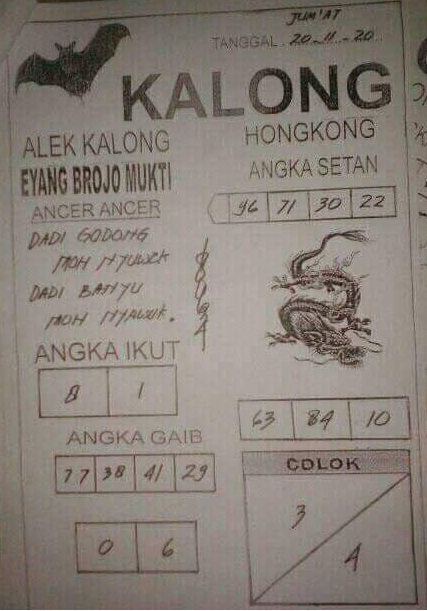 JUM'AT
TANGGAL. 20-11-20
KALONG
ALEK KALONG
HONGKONG
EYANG BROJO MUKTI
ANGKA SETAN
ANCER ANCER
96 71 30 22
DADI GODONG
MOH NYUWEK
DADI BANYU
MOH NYAWUK.
ANGKA IKUT
8 1
63 84 10
ANGKA GAIB
77 38 41 29
COLOK
3
4
0 6